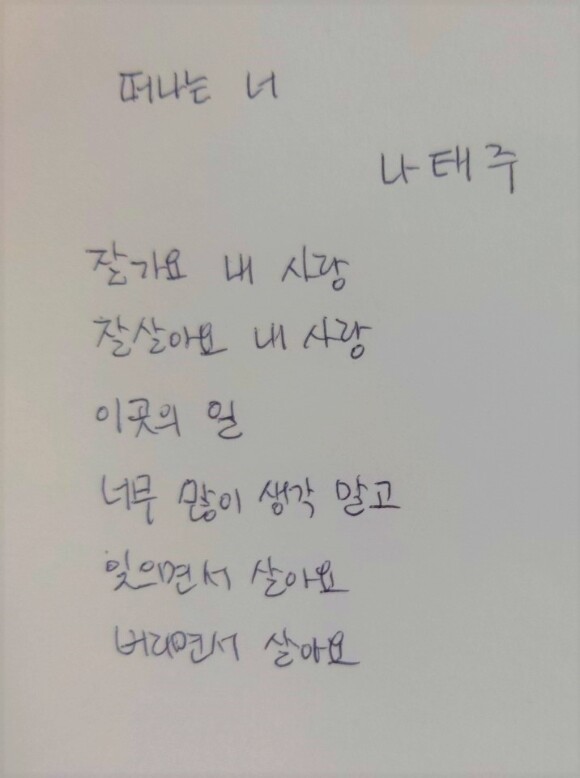 떠나는 너
나태주
잘가요 내 사랑
잘살아요 내 사랑
이곳의 일
너무 많이 생각 말고
잊으면서 살아요
버리면서 살아요